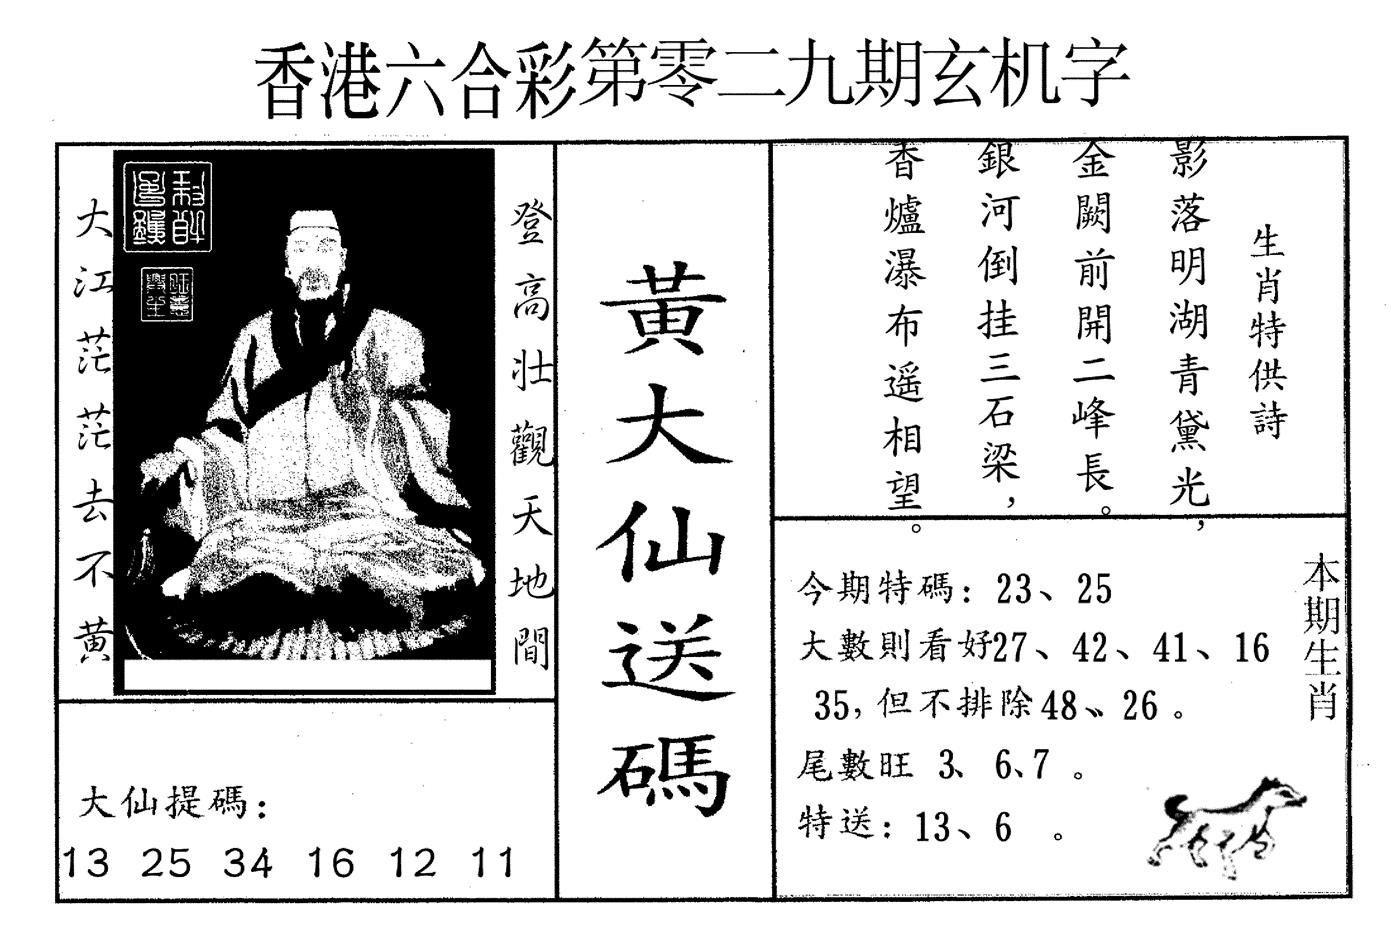 香港六合彩第零二九期玄机字
登高壯觀天地間
大江茫茫去不黄
大仙提碼：
13 25 34 16 12 11
黃大仙送碼
生肖特供詩
影落明湖青黛光，
金闕前開二峰長。
銀河倒挂三石梁，
香爐瀑布遥相望。
本期生肖
今期特碼：23、25
大數則看好27、42、41、16
35，但不排除48、26。
尾數旺 3、6、7。
特送：13、6 。